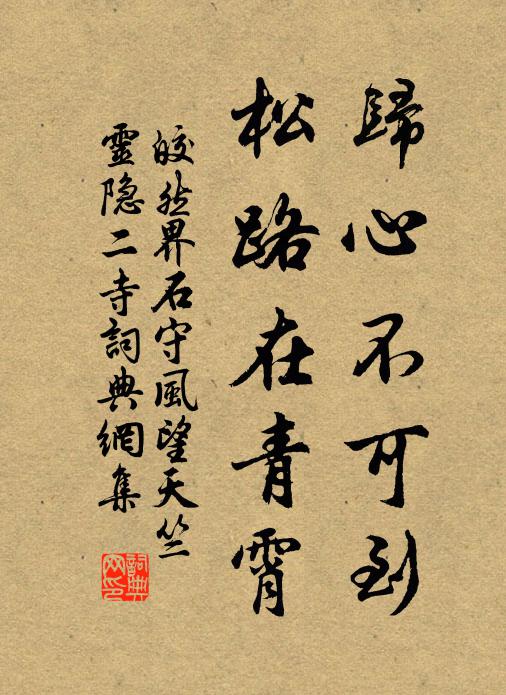 歸心不可到
松路在青霄
皎然界石守風望天竺
靈隐二寺詞典網集
詞典網印